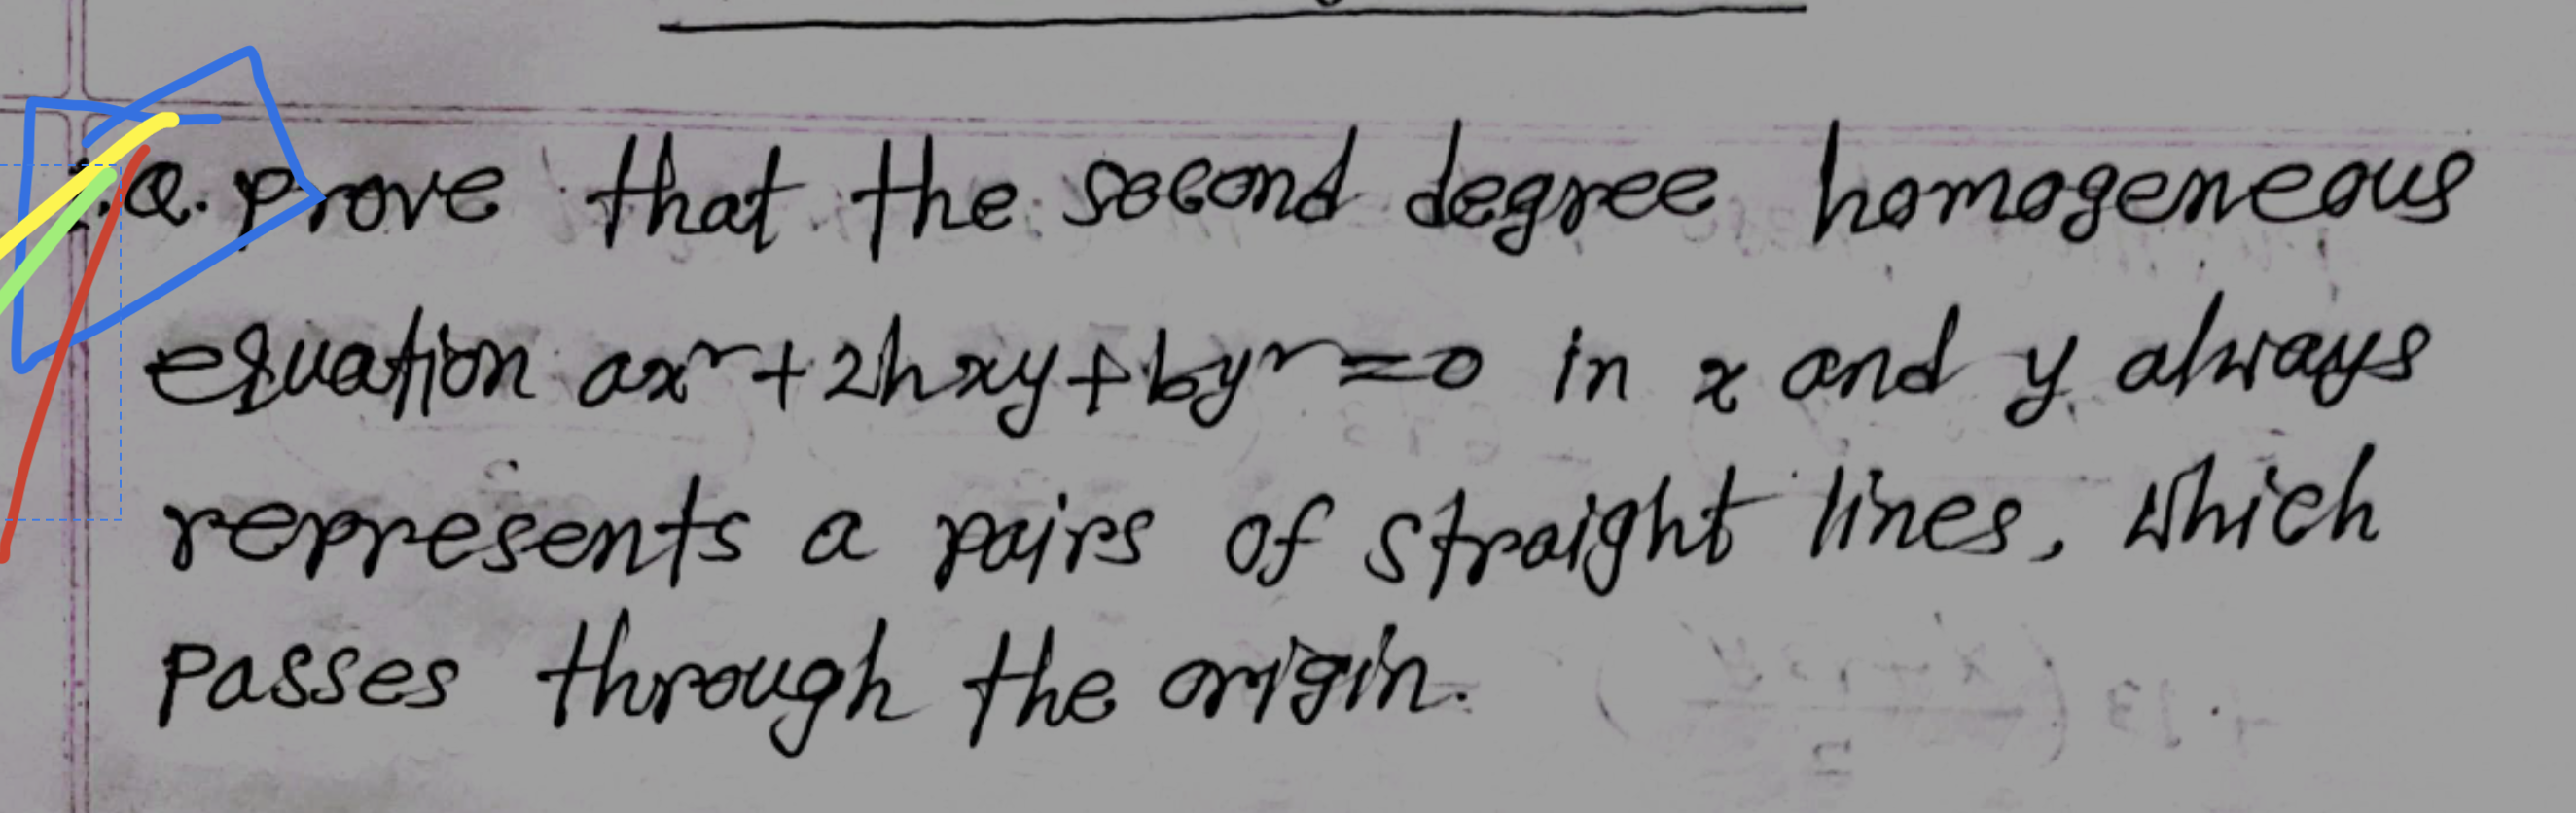 1.Q. Prove that the second degree homogeneous
equation ax²+2hxy+by²=0 in x and y always
represents a pairs of straight lines, which
passes through the origin.